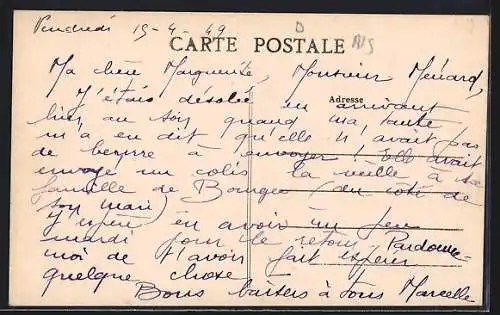 Vendredi 15-4-49
D
CARTE POSTALE
Ma chère Marguerite, Monsieur Ménard,
Adresse
J'étais désolée en arrivant
hier au soir quand ma tante
m'a en dit qu'elle n'avait pas
de beurre à envoyer ! Elle avait
envoyé un colis la veille à sa
famille de Bourges (du côté de
son mari)
J'espère en avoir un peu
mardi pour le retour. Pardonne-
moi de t'avoir fait espérer
quelque chose
Bons baisers à tous Marcelle